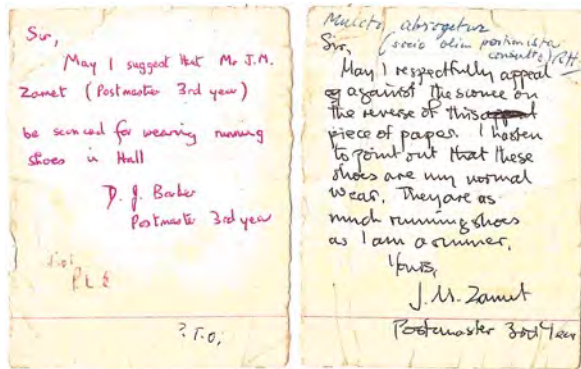 Sir,
May I suggest that Mr J.M.
Zamet (Postmaster 3rd year)
be sconced for wearing running
shoes in Hall
D. J. Barker
Postmaster 3rd year
P.T.O.
Mulcta abrogetur
(socio olim portionista
consulto) RH
Sir,
May I respectfully appeal
against the sconce on
the reverse of this
piece of paper. I hasten
to point out that these
shoes are my normal
wear. They are as
much running shoes
as I am a runner.
Yours,
J. M. Zamet
Postmaster 3rd Year